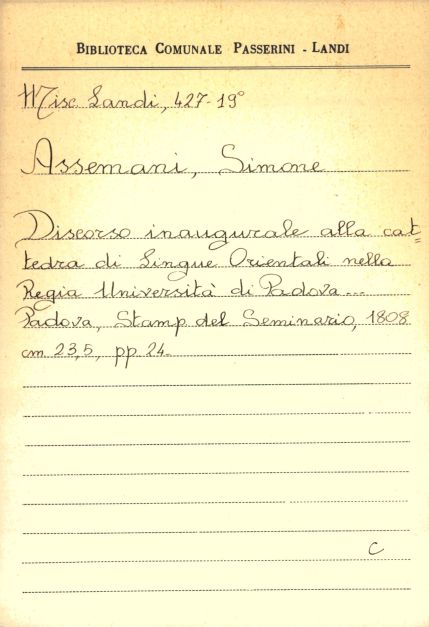 BIBLIOTECA COMUNALE PASSERINI - LANDI
Misc Landi, 427-19°
Assemani, Simone
Discorso inaugurale alla cat=
tedra di Lingue Orientali nella
Regia Università di Padova...
Padova, Stamp del Seminario, 1808
cm 23,5, pp. 24.
C